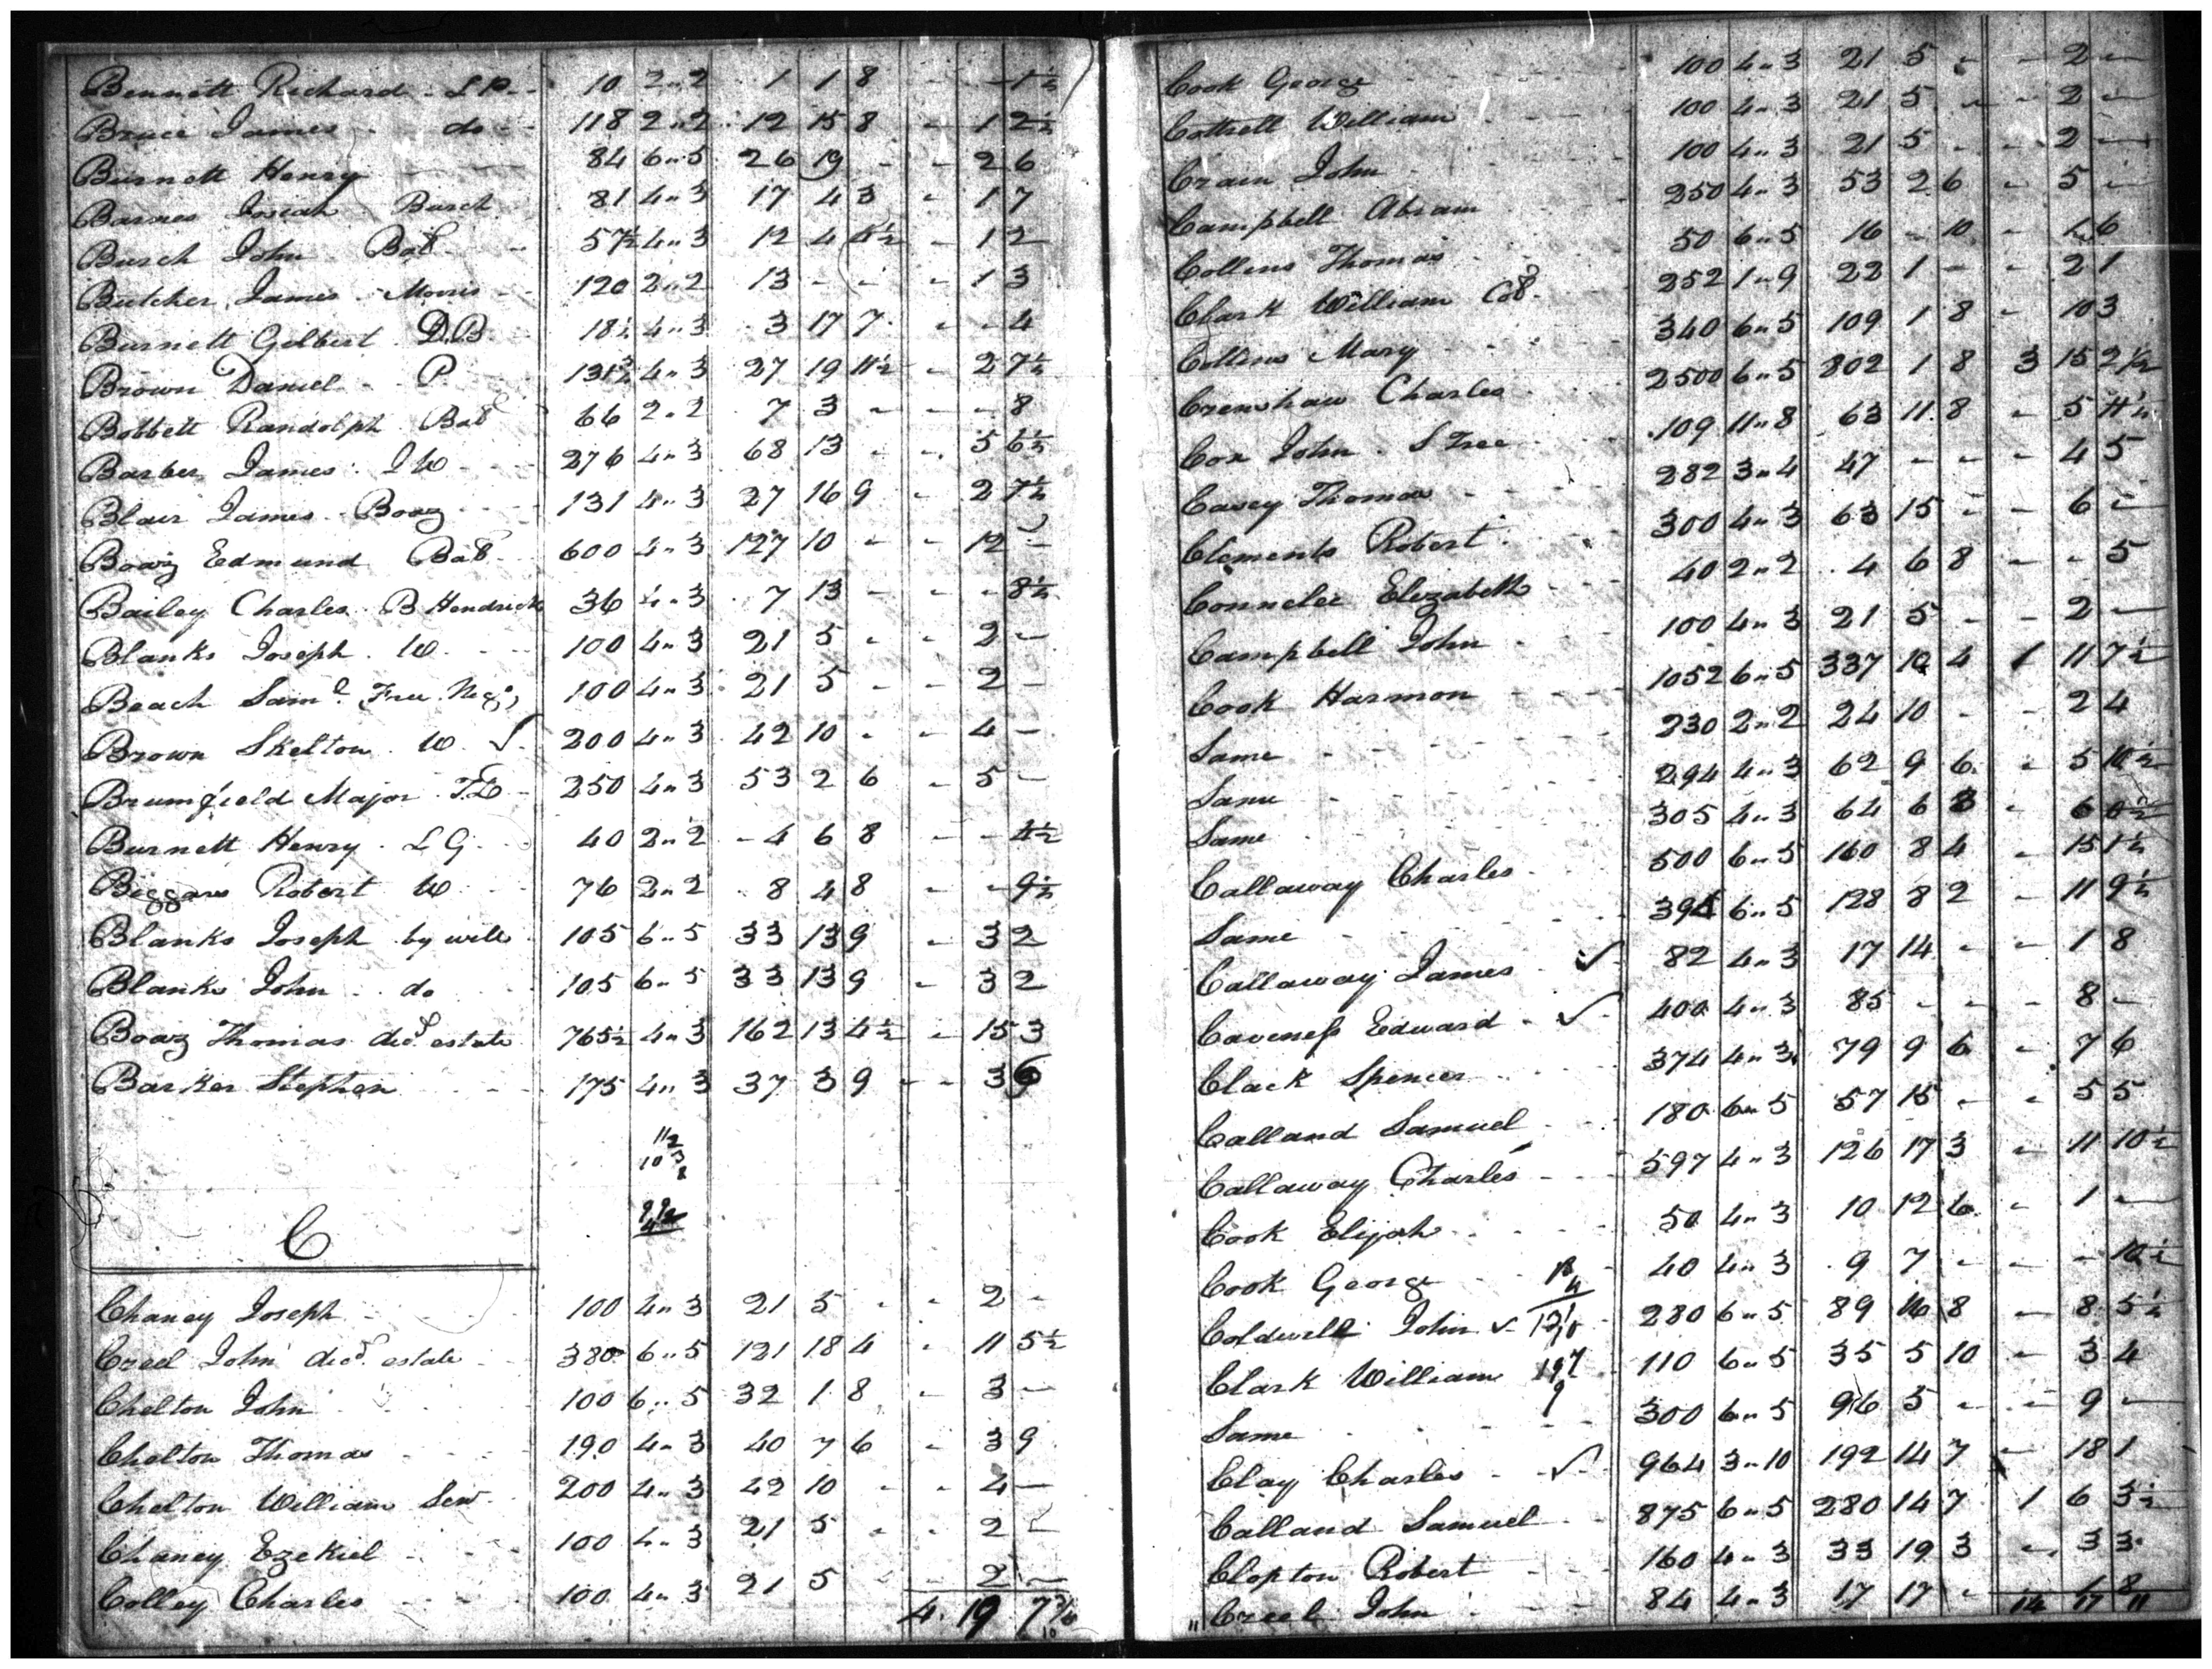 Bennett Richard - L P - 10 2 " 2 1 1 8 - - 1½
Bruce James - do - 118 2 " 2 12 15 8 - 1 2½
Burnett Henry 84 6 " 5 26 19 - - 2 6
Barnes Josiah Burch 81 4 " 3 17 4 3 - 1 7
Burch John Bab 57½ 4 " 3 12 4 4½ - 1 2
Butcher James - Morris 120 2 " 2 13 - - - 1 3
Burnett Gilbert D.B. 18½ 4 " 3 3 17 7 - - 4
Brown Daniel - P. 131¾ 4 " 3 27 19 11½ - 2 7½
Bobbett Randolph Bab 66 2 " 2 7 3 - - - 8
Barber James J W 276 4 " 3 68 13 - - 5 6½
Blair James - Boaz 131 4 " 3 27 16 9 - 2 7½
Boaz Edmund Bab 600 4 " 3 127 10 - - 12 -
Bailey Charles B Hendrick 36 4 " 3 7 13 - - - 8½
Blanks Joseph W. 100 4 " 3 21 5 - - 2 -
Beach Saml. Free Nego, 100 4 " 3 21 5 - - 2 -
Brown Skelton W. ✓ 200 4 " 3 42 10 - - 4 -
Brumfield Major 250 4 " 3 53 2 6 - 5 -
Burnett Henry L G. 40 2 " 2 - 4 6 8 - - 4½
Biggars Robert W 76 2 " 2 8 4 8 - - 9½
Blanks Joseph by will 105 6 " 5 33 13 9 - 3 2
Blanks John - do 105 6 " 5 33 13 9 - 3 2
Boaz Thomas decd. estate 765½ 4 " 3 162 13 4½ - 15 3
Barker Stephen 175 4 " 3 37 3 9 - - 3 6
C
Chaney Joseph 100 4 " 3 21 5 - - 2 -
Creel John decd. estate 380 6 " 5 121 18 4 - 11 5½
Chelton John 100 6 " 5 32 1 8 - 3 -
Chelton Thomas 190 4 " 3 40 7 6 - 3 9
Chelton William Senr. 200 4 " 3 42 10 - - 4 -
Chaney Ezekiel 100 4 " 3 21 5 - - 2 -
Colley Charles 100 4 " 3 21 5 - - 2 -
4. 19 7
Cook George 100 4 " 3 21 5 - - 2 -
Cottrell William 100 4 " 3 21 5 - - 2 -
Crain John 100 4 " 3 21 5 - - 2 -
Campbell Abram 250 4 " 3 53 2 6 - 5 -
Collins Thomas 50 6 " 5 16 - 10 - 1 6
Clark William Cob. 252 1 " 9 22 1 - - 2 1
Collins Mary 340 6 " 5 109 1 8 - 10 3
Crenshaw Charles 2500 6 " 5 802 1 8 3 15 2½
Cox John. S Tree 109 11 " 8 63 11 8 - 5 11½
Casey Thomas 282 3 " 4 47 - - - 4 5
Clements Robert 300 4 " 3 63 15 - - 6 -
Connelee Elizabeth 40 2 " 2 4 6 8 - - 5
Campbell John 100 4 " 3 21 5 - - 2 -
Cook Harmon 1052 6 " 5 337 10 4 1 11 7½
Same 230 2 " 2 24 10 - - 2 4
Same 294 4 " 3 62 9 6 - 5 10½
Same 305 4 " 3 64 6 3 - 6 0½
Callaway Charles 500 6 " 5 160 8 4 - 15 1½
Same 6 " 5 128 8 2 - 11 9½
Callaway James ✓ 82 4 " 3 17 14 - - 1 8
Caveness Edward - ✓ 400 4 " 3 85 - - - 8 -
Clack Spencer 374 4 " 3 79 9 6 - 7 6
Calland Samuel 180 6 " 5 57 15 - - 5 5
Callaway Charles 597 4 " 3 126 17 3 - 11 10½
Cook Elijah 50 4 " 3 10 12 6 - 1 -
Cook George 40 4 " 3 9 7 - - - 10½
Coldwell John ✓ 280 6 " 5 89 16 8 - 8 5½
Clark William 110 6 " 5 35 5 10 - 3 4
Same 300 6 " 5 96 5 - - 9 -
Clay Charles - ✓ 964 3 " 10 192 14 7 - 18 1
Calland Samuel 875 6 " 5 280 14 7 1 6 3½
Clopton Robert 160 4 " 3 33 19 3 - 3 3
" Creel John 84 4 " 3 17 17 - - 1 8
14 17 11